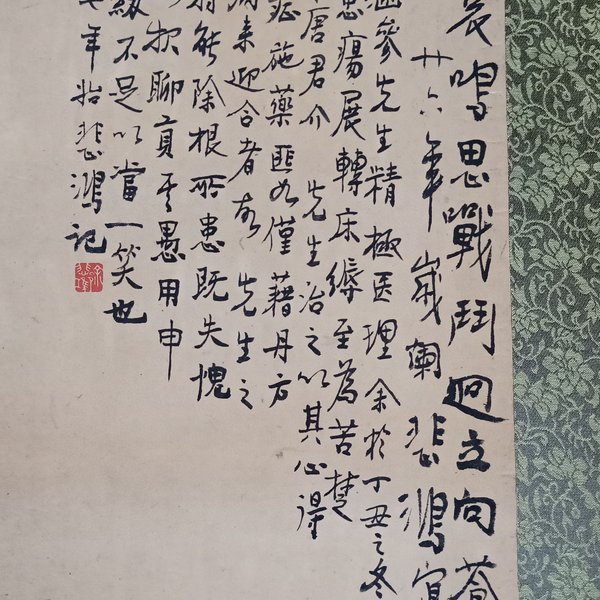 哀鳴思戰鬥迥立向蒼
廿六年歲闌悲鴻寫
涵參先生精極医理余於丁丑之冬
患瘍展轉床縟至為苦楚
唐君介 先生治之以其心得
施藥匪僅藉丹方
来迎合者 先生之
能除根所患既失愧
聊貢其愚用申
緣不足以當一笑也
年始悲鴻記